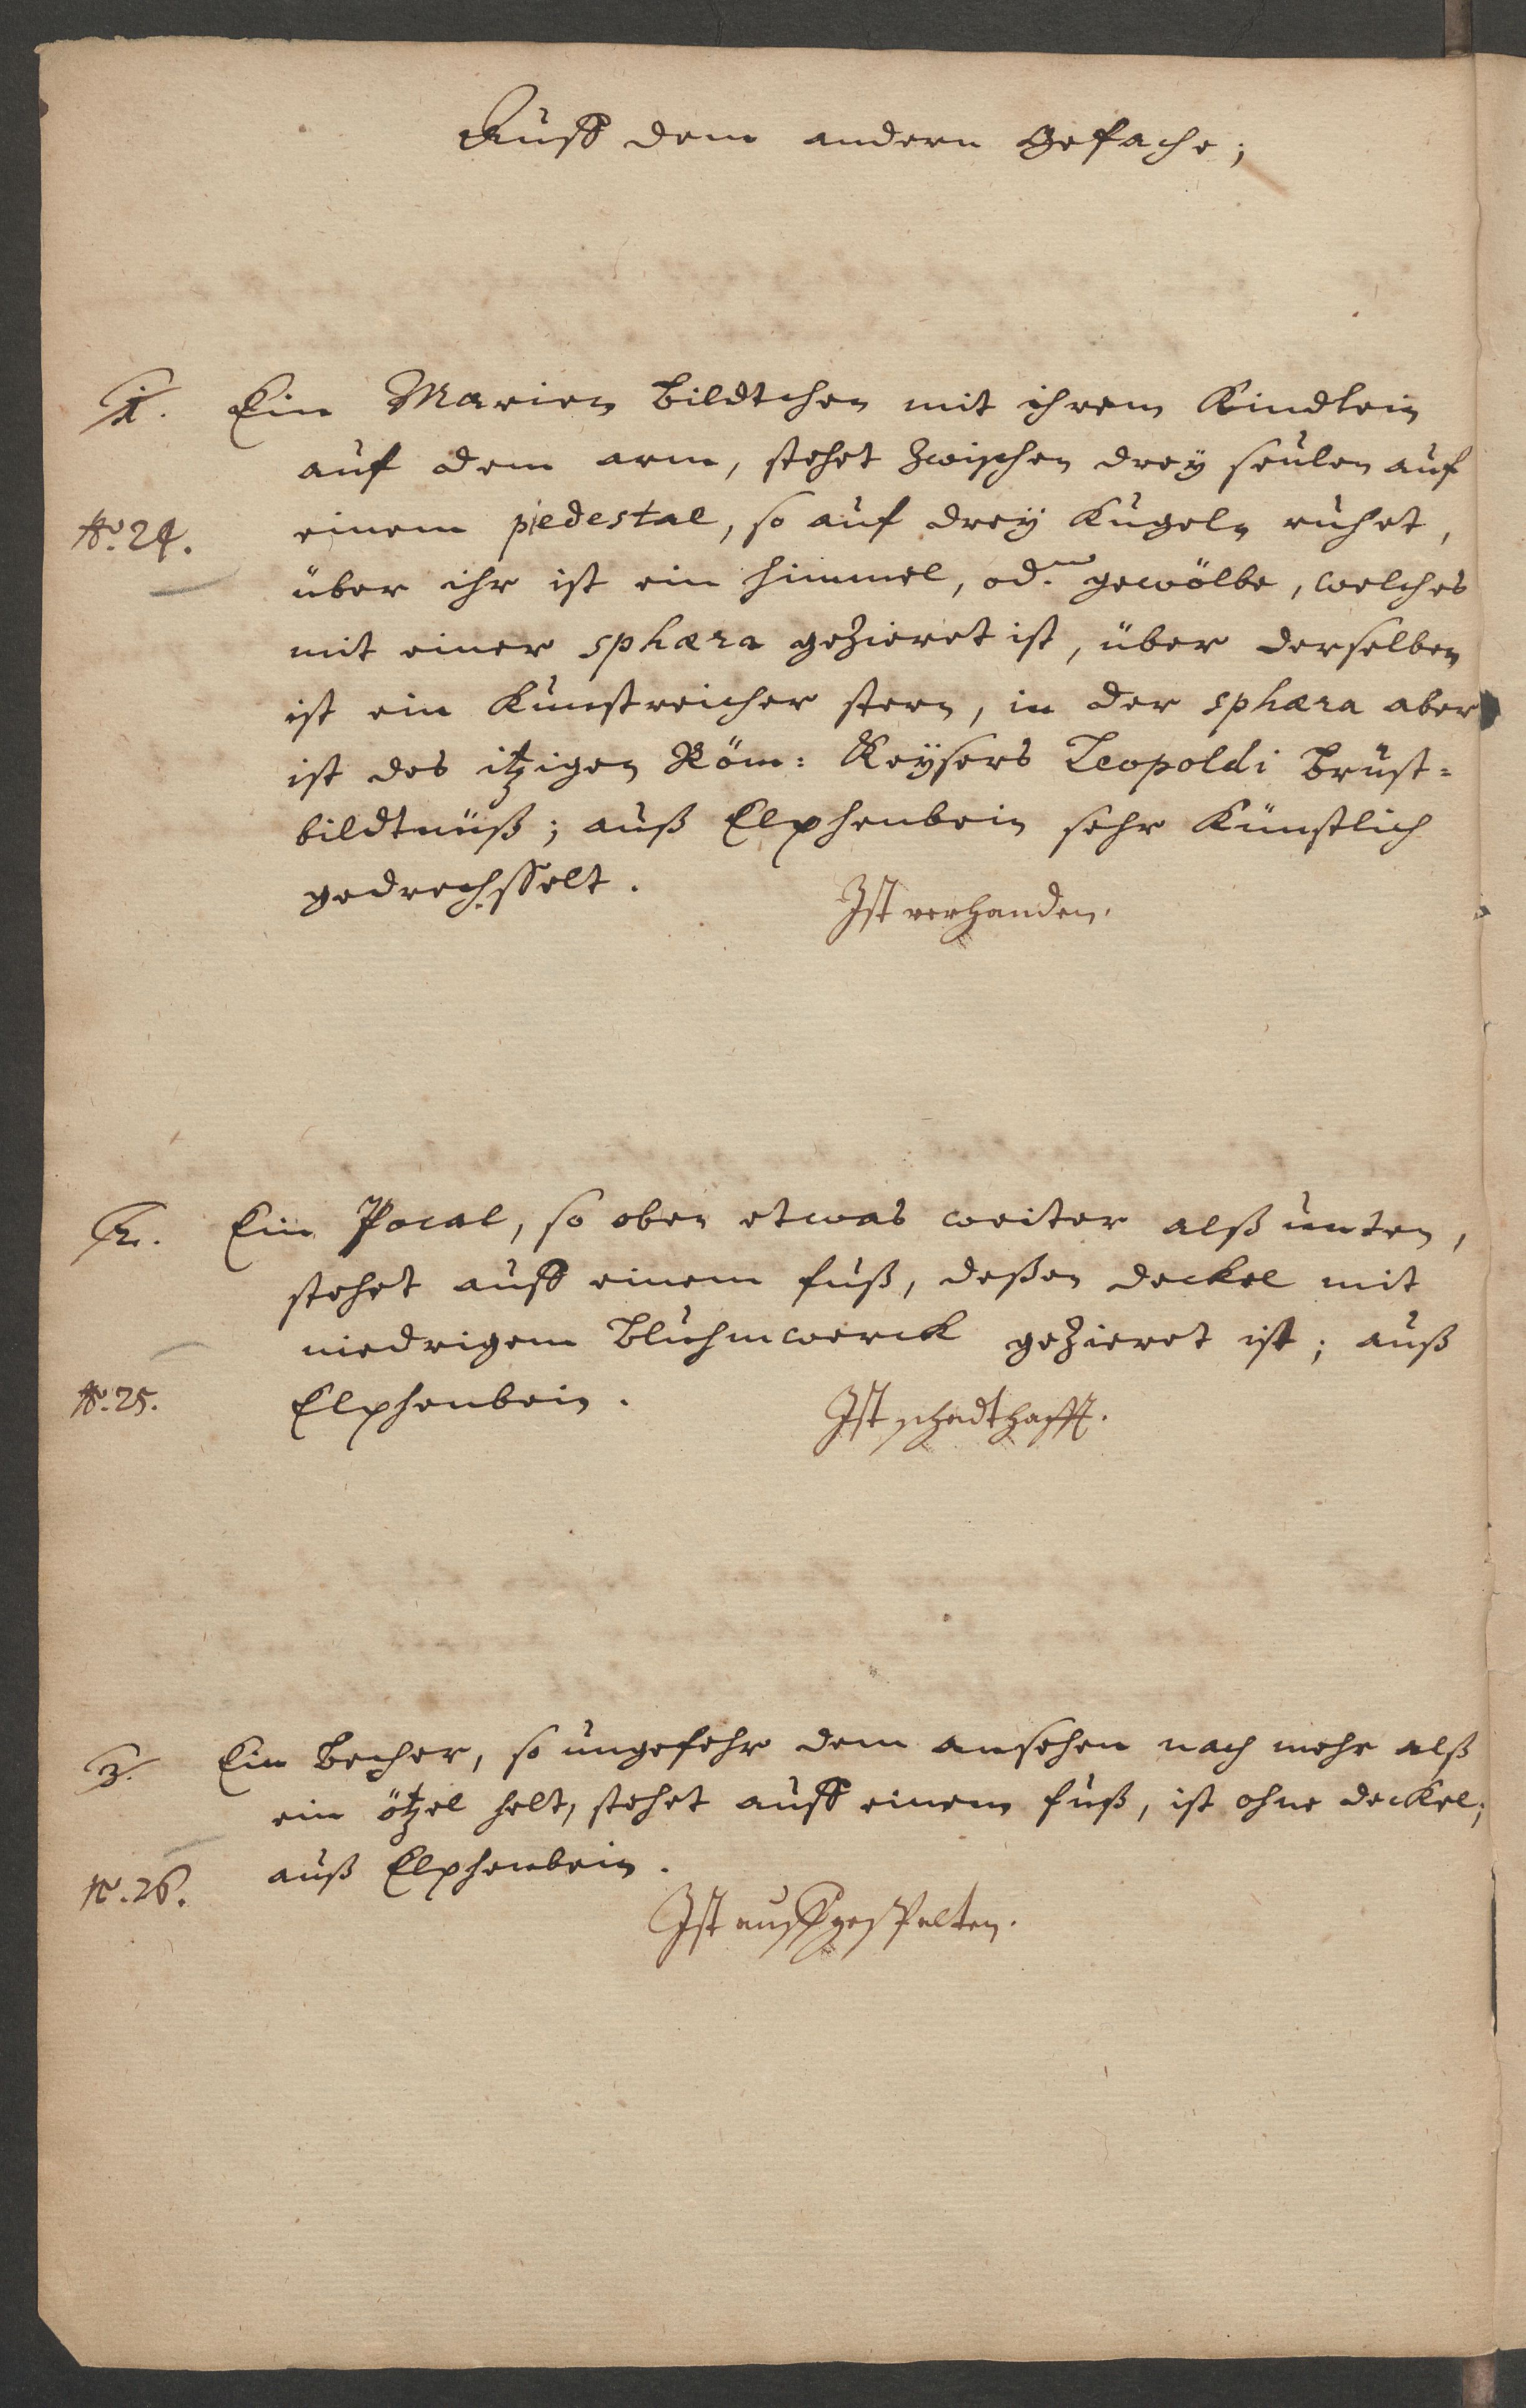 Auff dem andern Gefache;
1. Ein Marien Bildtchen mit ihrem Kindlein
auf dem arm, stehet zwischen drey seulen auf
No. 24. einem piedestal, so auf drey Kugeln ruhet,
über ihr ist ein himmel, od. gewölbe, welches
mit einer sphæra gezieret ist, über derselben
ist ein Kunstreicher stern, in der sphæra aber
ist des itzigen Röm: Keysers Leopoldi Brust-
bildtnüß; auß Elphenbein sehr Künstlich
gedrechsselt.
Ist verhanden.
2. Ein Pocal, so oben etwas weiter alß unten,
stehet auff einem fuß, deßen deckel mit
niedrigem Bluhmwerck gezieret ist; auß
No. 25. Elphenbein.
Ist schadthafft.
3. Ein Becher, so ungefehr dem ansehen nach mehr alß
ein ötzel helt, stehet auff einem fuß, ist ohne deckel;
No. 26. auß Elphenbein.
Ist auffgespalten.